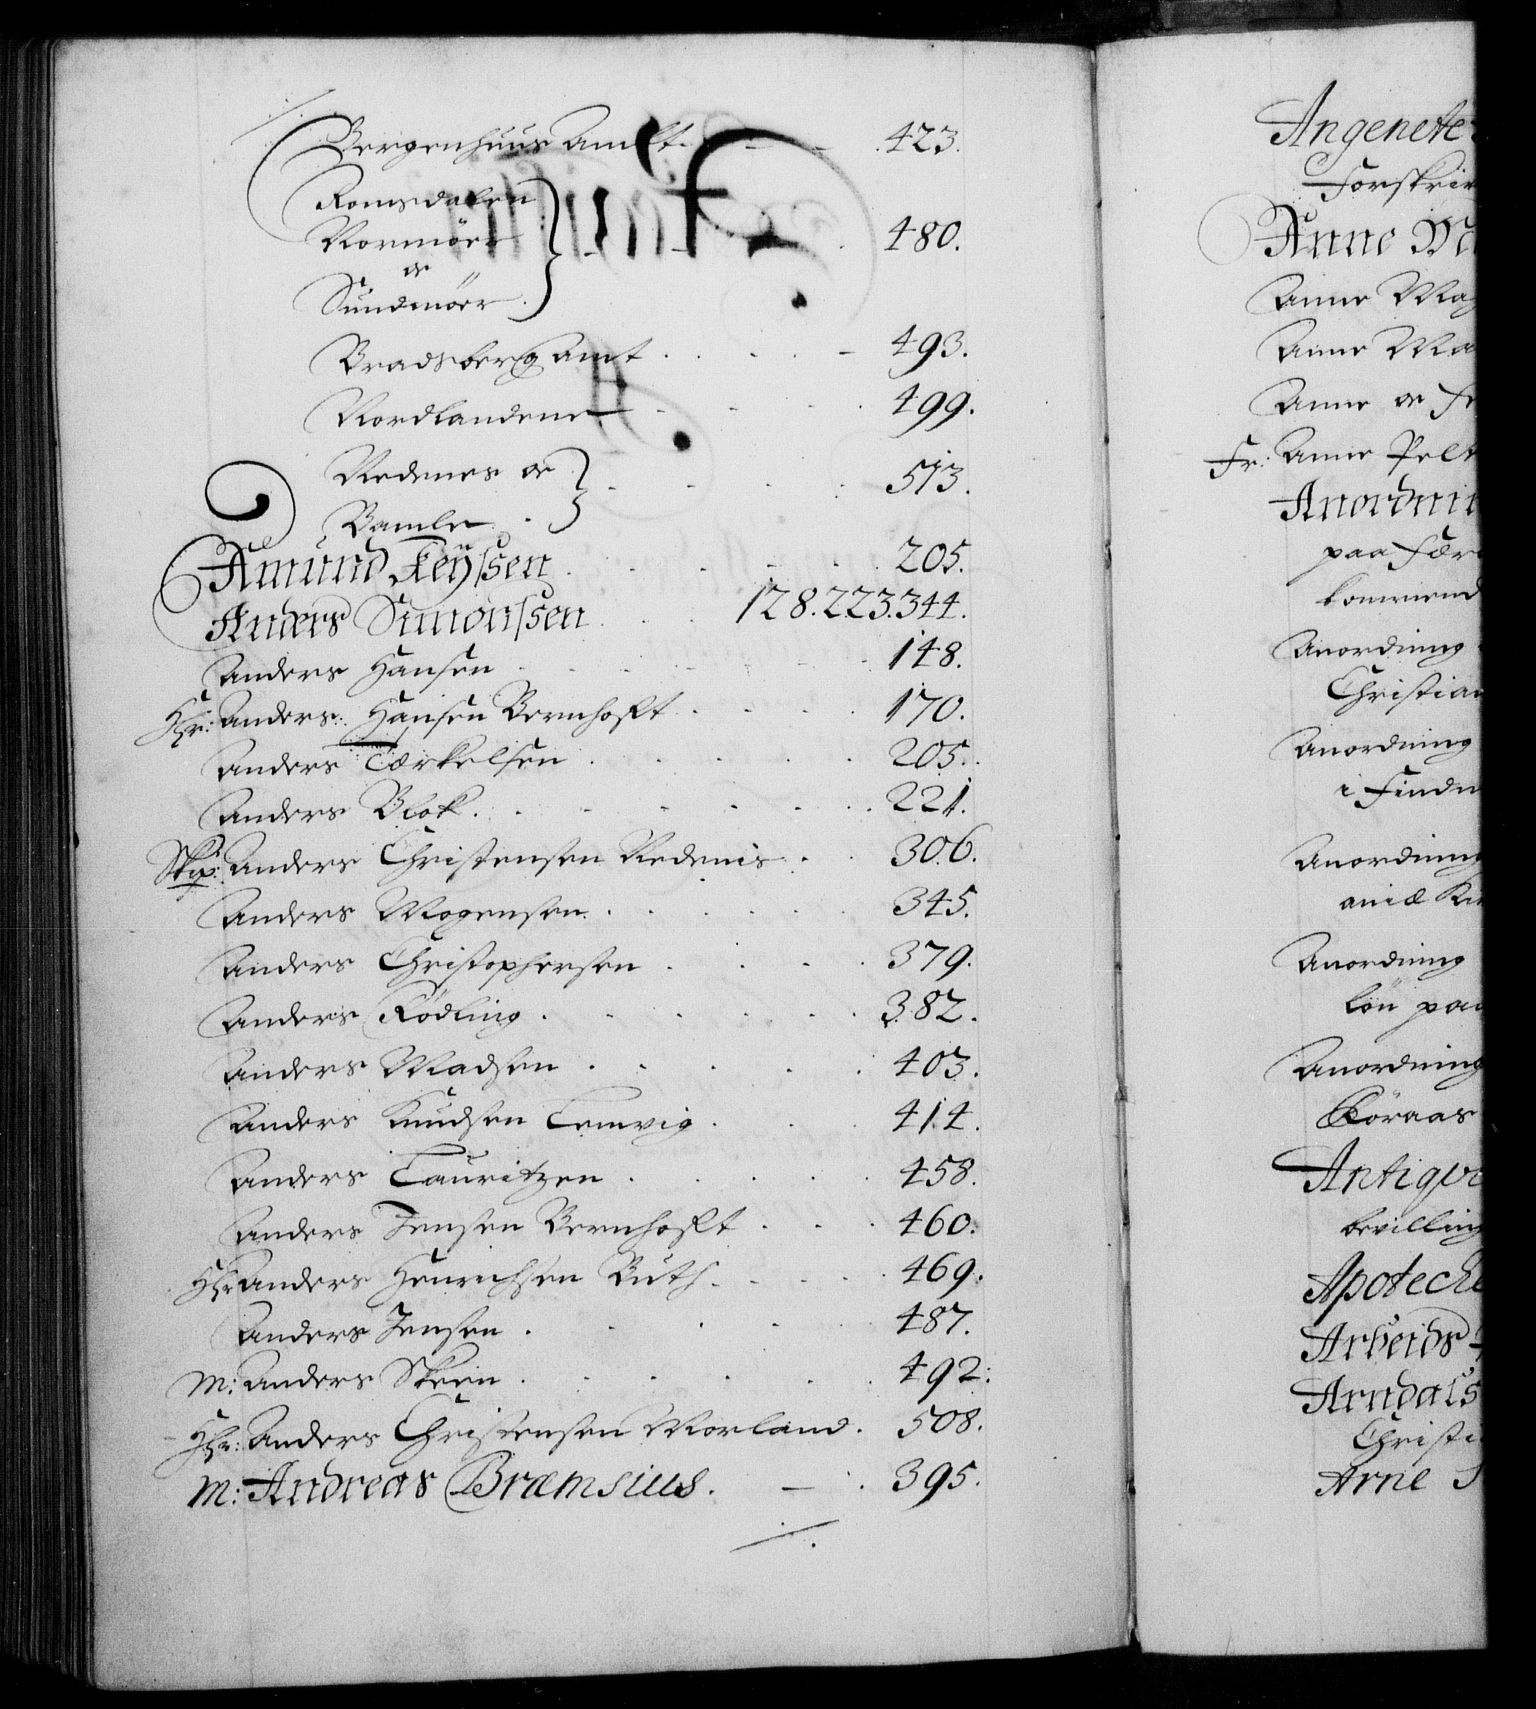 Bergenhuus Amt. 423.
Romsdalen
Normøer 480.
oc
Sundmøer.
Bradsberg Amt 493.
Nordlandene 499.
Nedenes oc 513.
Bamle
Amund Keÿssen 205.
Anders Simonssen 128.223.344.
Anders Hansen 148.
Hr: Anders Hansen Bernhoft 170.
Anders Tærkelsen 205.
Anders Blok. 221.
Skip: Anders Christensen Nedenis. 306.
Anders Mogensen. 345.
Anders Christophersen 379.
Anders Rødling. 382.
Anders Madsen 403.
Anders Knudsen Lemvig 414.
Anders Lauritzen 458.
Anders Jensen Bernhoft 460.
Hr Anders Henrichsen Buth. 469.
Anders Jensen. 487.
M: Anders Skeen. 492:
Hr: Anders Christensen Morland. 508.
M: Andreas Bræmsius. 395.
Angenete
Forskriv
Anne M
Anne Mag
Anne Ma
Anne oc Fr
Fr: Anne Pelt
Anordnin
paa Fær
kommend
Anordning
Christian
Anordning
i Findm
Anordning
aniæ
Anordning
løn paa
Anordning
Røraas
Antiqvi
bevilling
Apoteche
Arbeids
Arndals
Christi
Arne